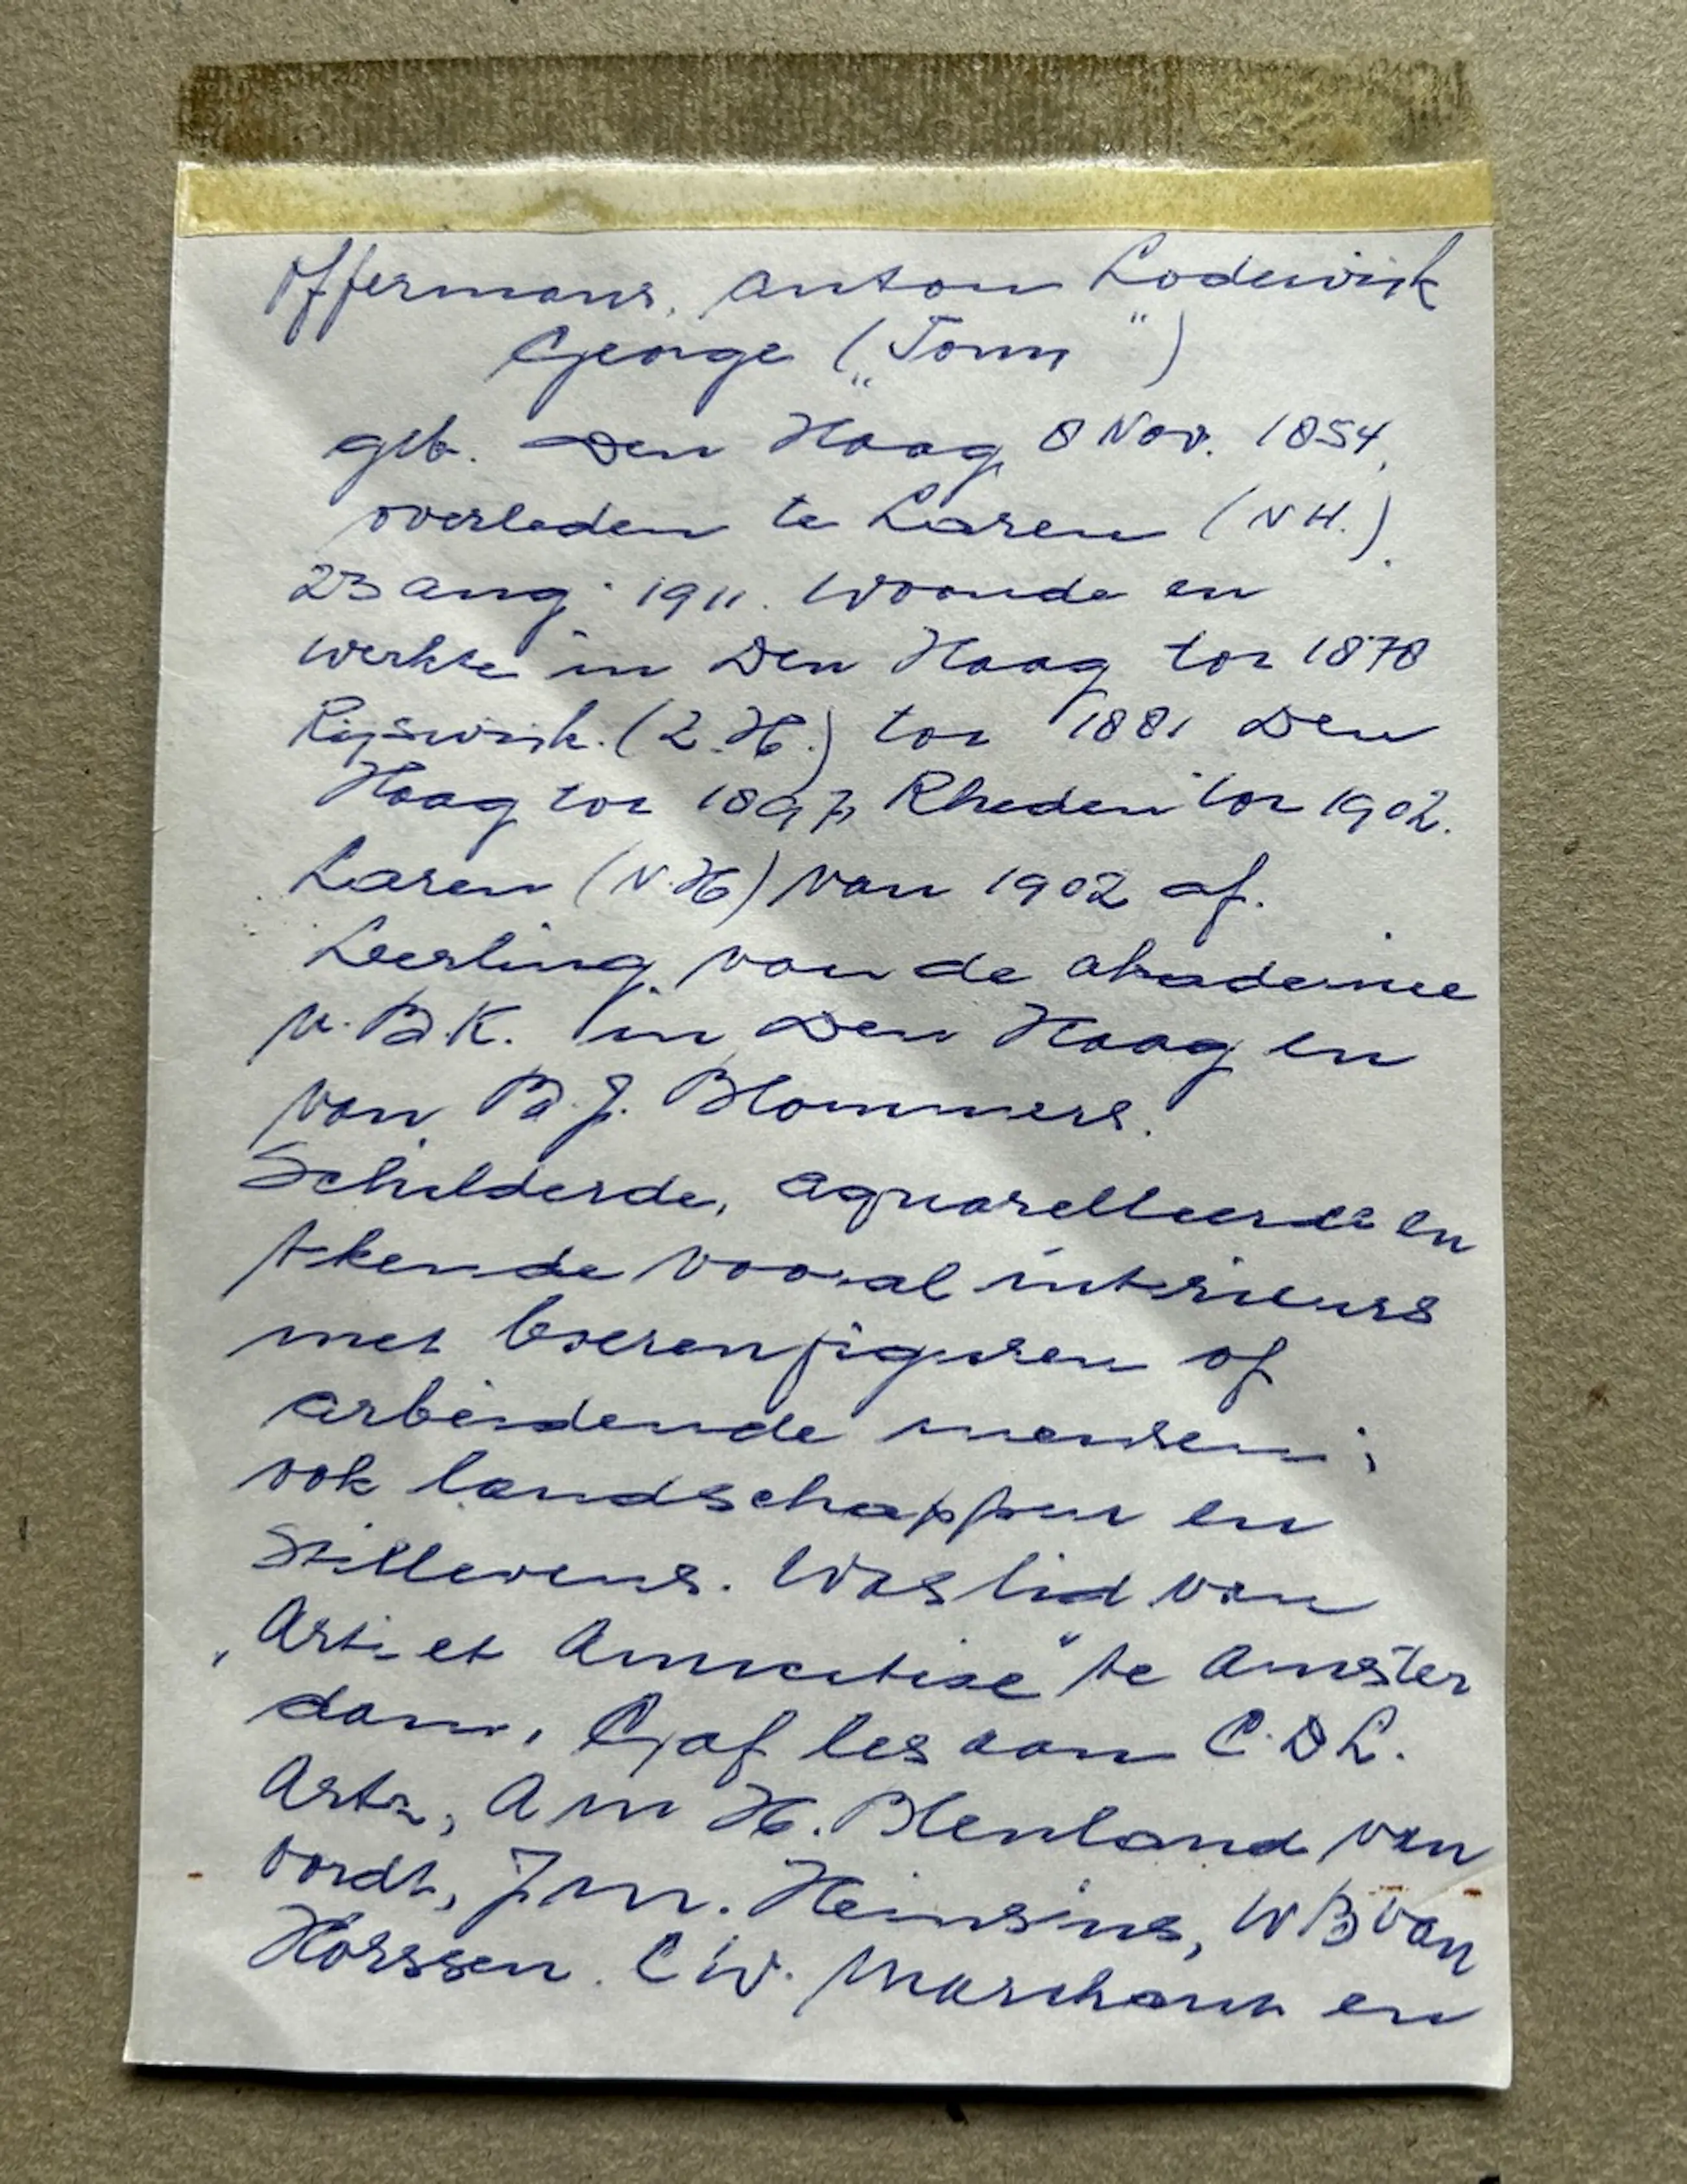 Offermans, Anton Lodewijk
George („Tony")
geb. Den Haag 8 Nov. 1854,
overleden te Laren (NH.).
23 aug. 1911. Woonde en
werkte in Den Haag tot 1878
Rijswijk. (Z.H.) tot 1881 Den
Haag tot 1897, Rheden tot 1902.
Laren (N.H) van 1902 af.
Leerling van de akademie
v. B.K. in Den Haag en
van B.J. Blommers.
Schilderde, aquarelleerde en
tekende vooral interieurs
met boerenfiguren of
arbeidende mensen;
ook landschappen en
Stillevens. Was lid van
„Arti et Amicitiae" te Amster
dam, Gaf les aan C.D.L.
Artz, A M H. Blenland van
voordt, J.M. Heinsius, W B van
Horssen. C W. Marchant en